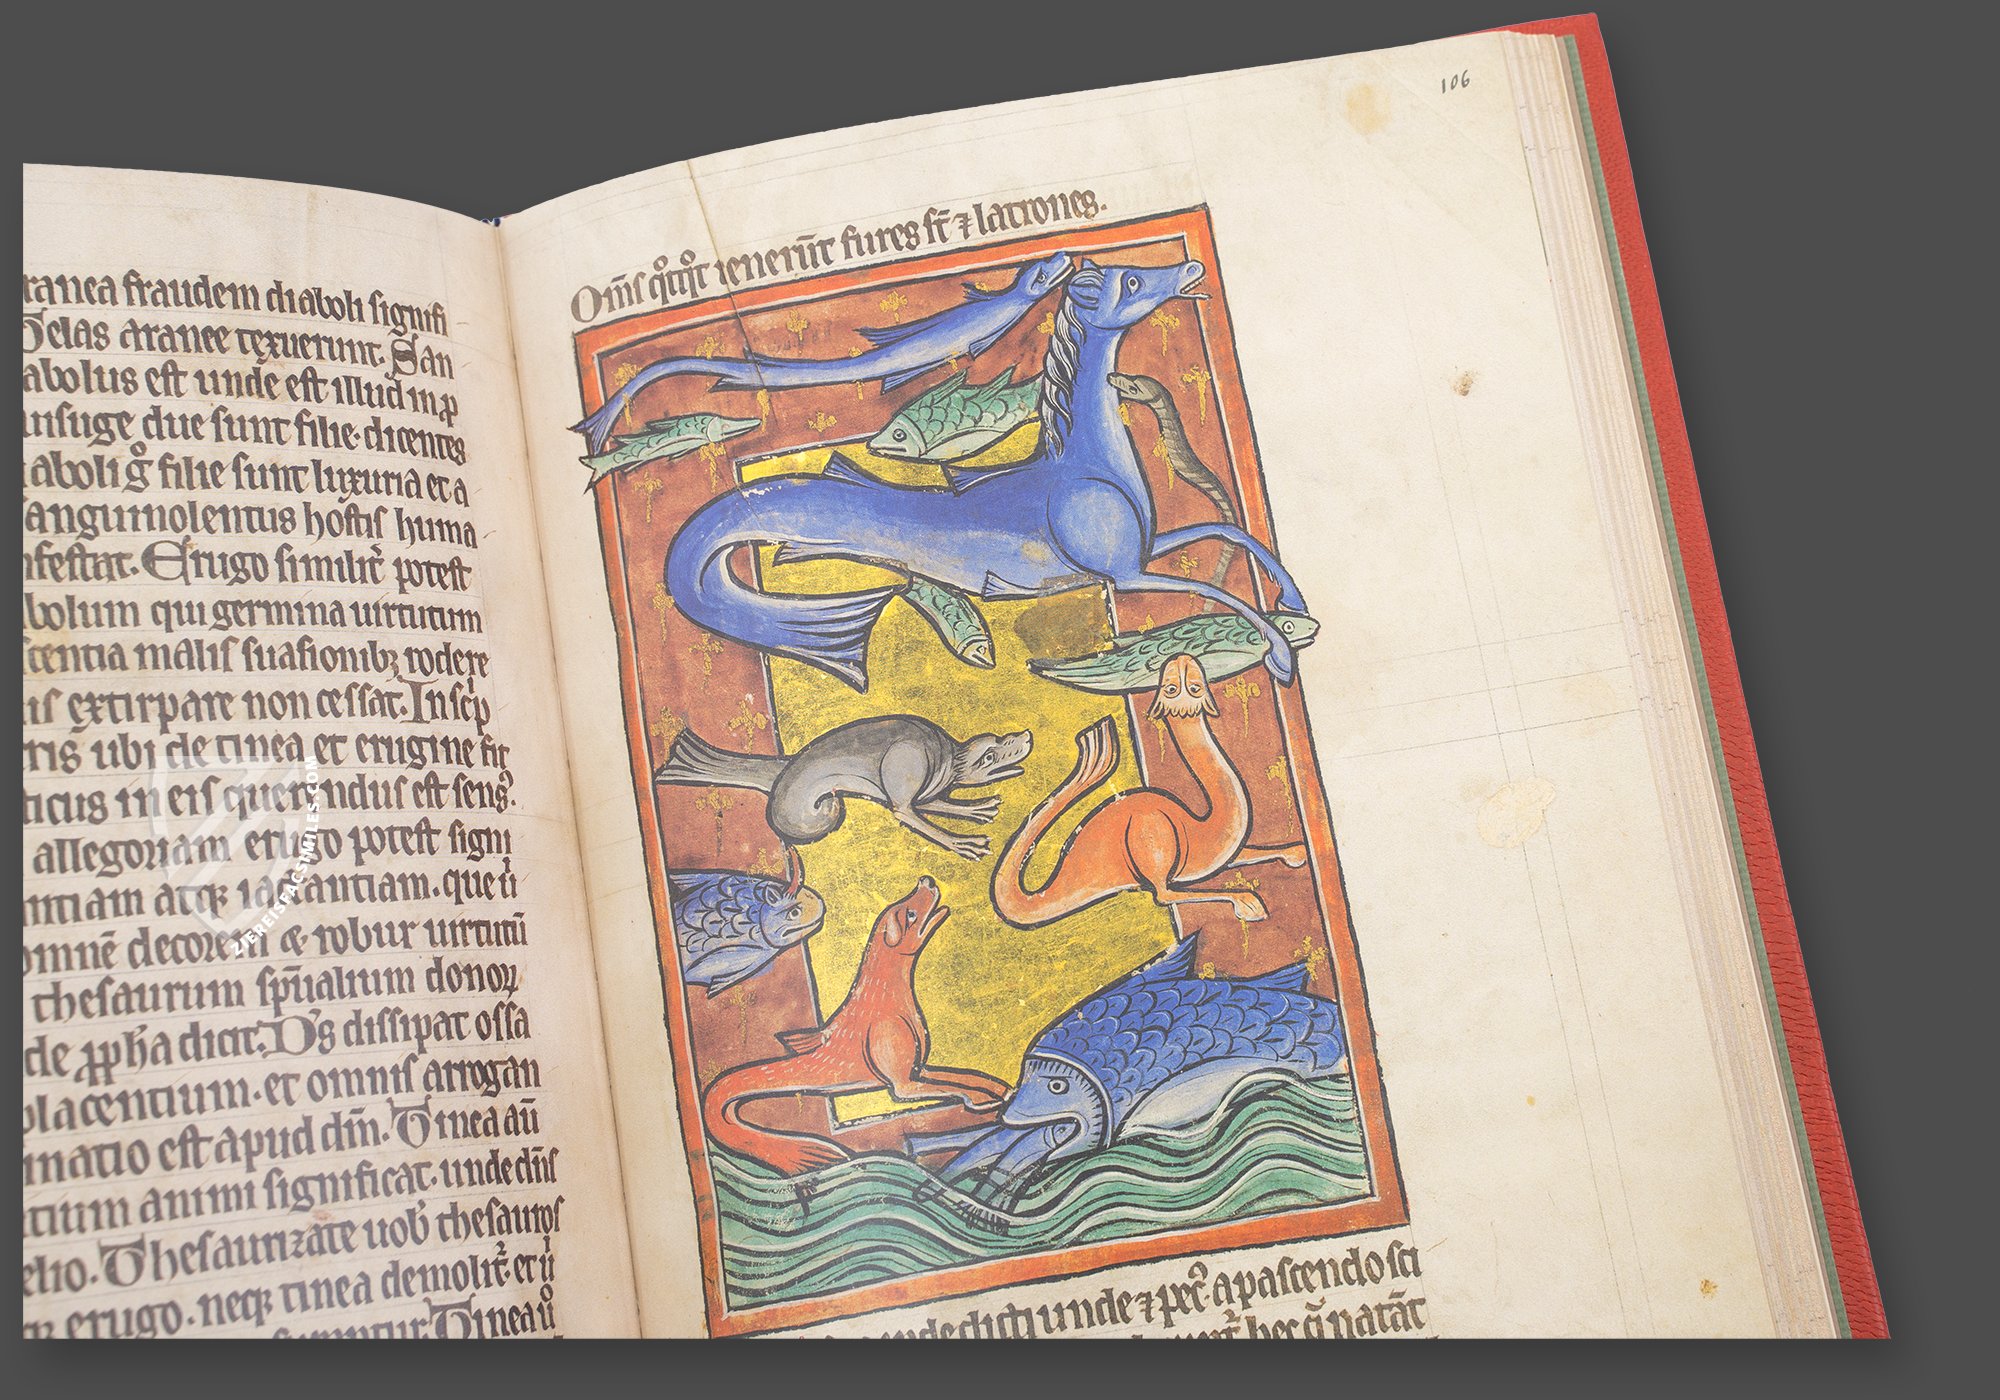 ranea fraudem diaboli signifi
Telas aranee texuerunt. San
abolus est unde est illud in ꝓ
nsuge due sunt filie. dicentes
aboli gͦ filie sunt luxuria et a
anguinolentus hostis huma
nfestat. Erugo similit̄ potest
bolum qui germina uirtutum
centia malis suasionibꝫ rodere
is extirpare non cessat. In scͥp
ris ubi de tinea et erugine fit
ticus in eis querendus est sens᾽.
allegoriam erugo potest signi
ntiam atqꝫ iactantiam. que ū
omnē decorem & robur uirtutū
thesaurum sp̄ualium donoꝝ
de ꝓph̄a dicit. Ds̄ dissipat ossa
placentium. et omnis arrogan
inatio est apud dn̄m. Tinea aū
tium animi significat. unde dn̄s
elio. Thesaurizate uob̄ thesauros
erugo. neqꝫ tinea demolit̄. et ū
Tinea ū
106
Om̄s qͦtqͦt uenerūt fures st̄ ⁊ latrones.
dicti unde ⁊ pec᾽ a pascendo sci
hec natāt
ZIEREISFACSIMILES.COM